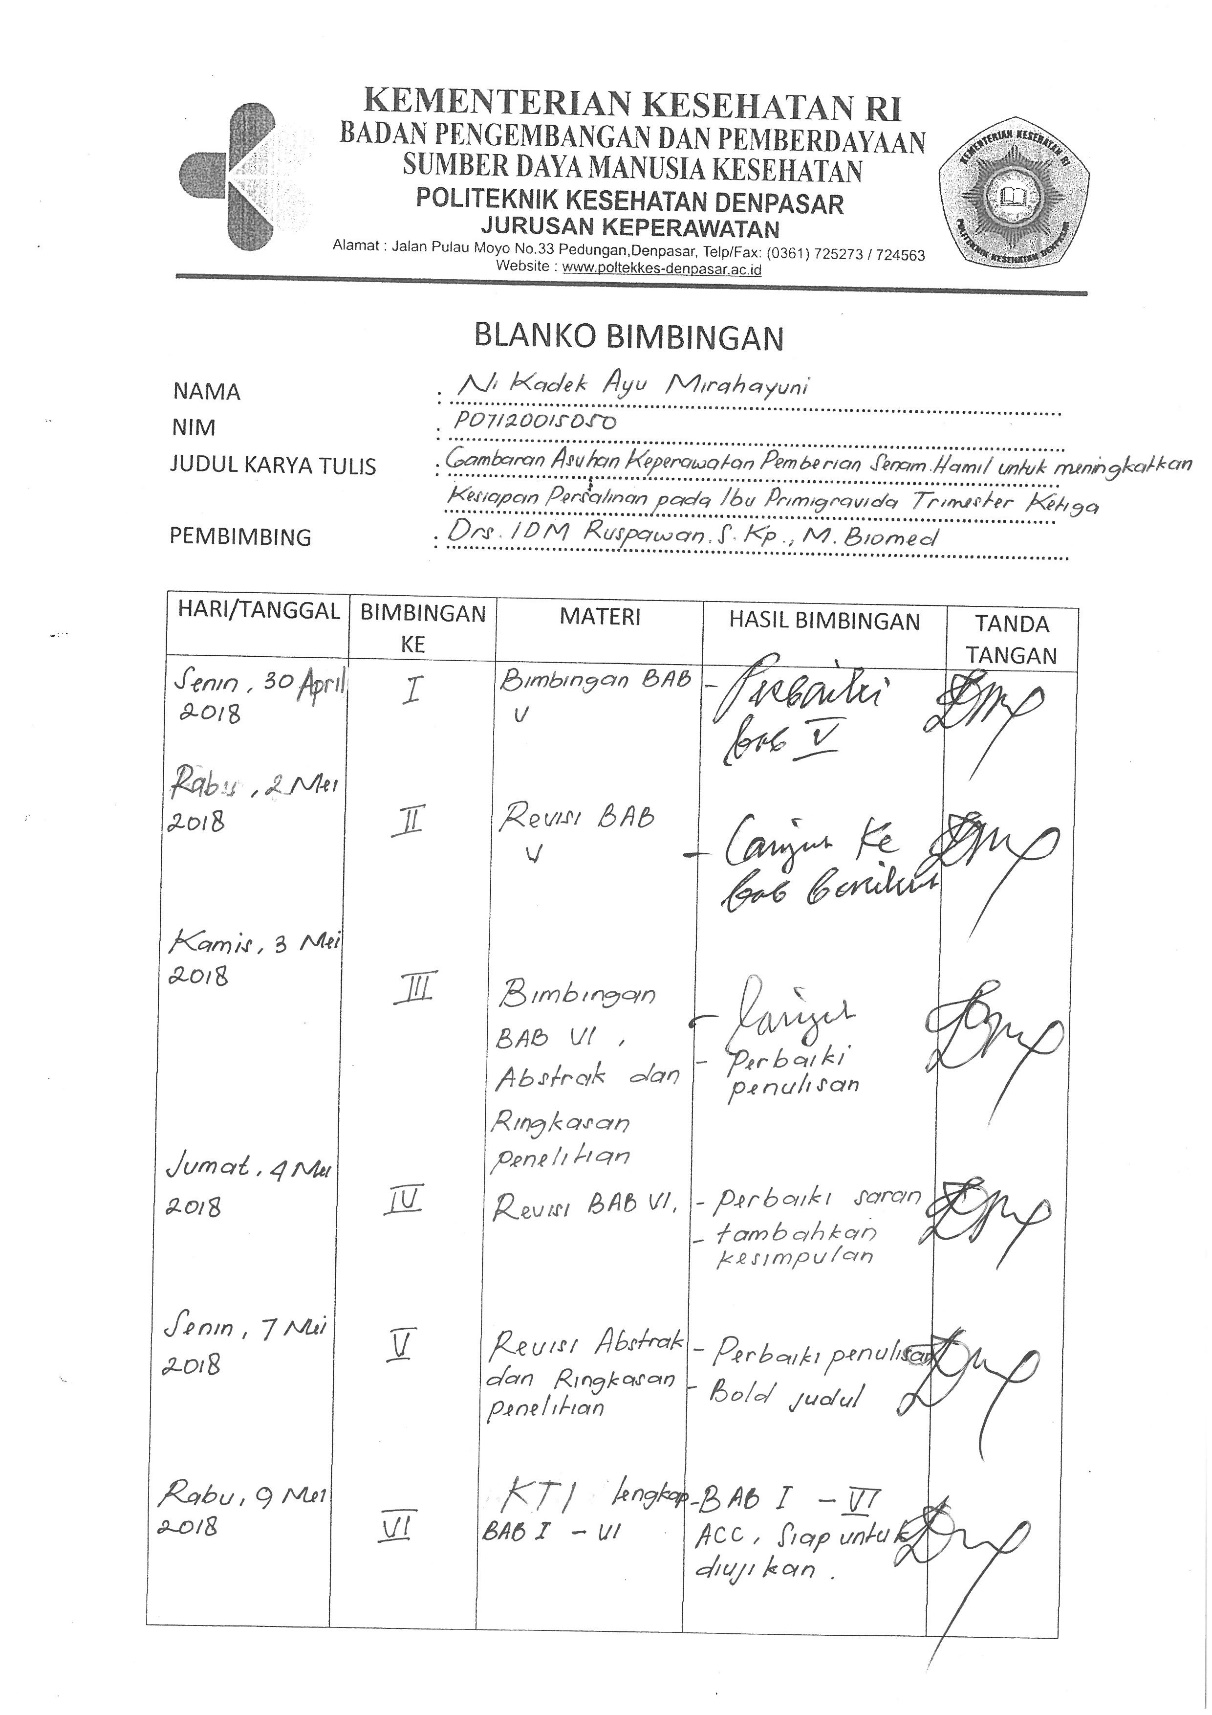 KEMENTERIAN KESEHATAN RI
BADAN PENGEMBANGAN DAN PEMBERDAYAAN
SUMBER DAYA MANUSIA KESEHATAN
POLITEKNIK KESEHATAN DENPASAR
JURUSAN KEPERAWATAN
Alamat : Jalan Pulau Moyo No.33 Pedungan,Denpasar, Telp/Fax: (0361) 725273 / 724563
Website : www.poltekkes-denpasar.ac.id
KEMENTERIAN KESEHATAN RI
POLITEKNIK KESEHATAN DENPASAR
BLANKO BIMBINGAN
NAMA : Ni Kadek Ayu Mirahayuni
NIM : P07120015050
JUDUL KARYA TULIS : Gambaran Asuhan Keperawatan Pemberian Senam Hamil untuk meningkatkan
Kesiapan Persalinan pada Ibu Primigravida Trimester Ketiga
PEMBIMBING : Drs. IDM Ruspawan, S.Kp., M.Biomed
HARI/TANGGAL BIMBINGAN KE MATERI HASIL BIMBINGAN TANDA TANGAN
Senin, 30 April I Bimbingan BAB - Perbaiki
2018 V bab V
Rabu, 2 Mei
2018 II Revisi BAB - Lanjut ke
V bab berikut
Kamis, 3 Mei
2018 III Bimbingan - lanjut
BAB VI, - Perbaiki
Abstrak dan penulisan
Ringkasan
penelitian
Jumat, 4 Mei
2018 IV Revisi BAB VI. - perbaiki saran
- tambahkan
kesimpulan
Senin, 7 Mei
2018 V Revisi Abstrak - Perbaiki penulisan
dan Ringkasan - Bold judul
penelitian
Rabu, 9 Mei KTI lengkap - BAB I - VI
2018 VI BAB I - VI ACC, siap untuk
diujikan.